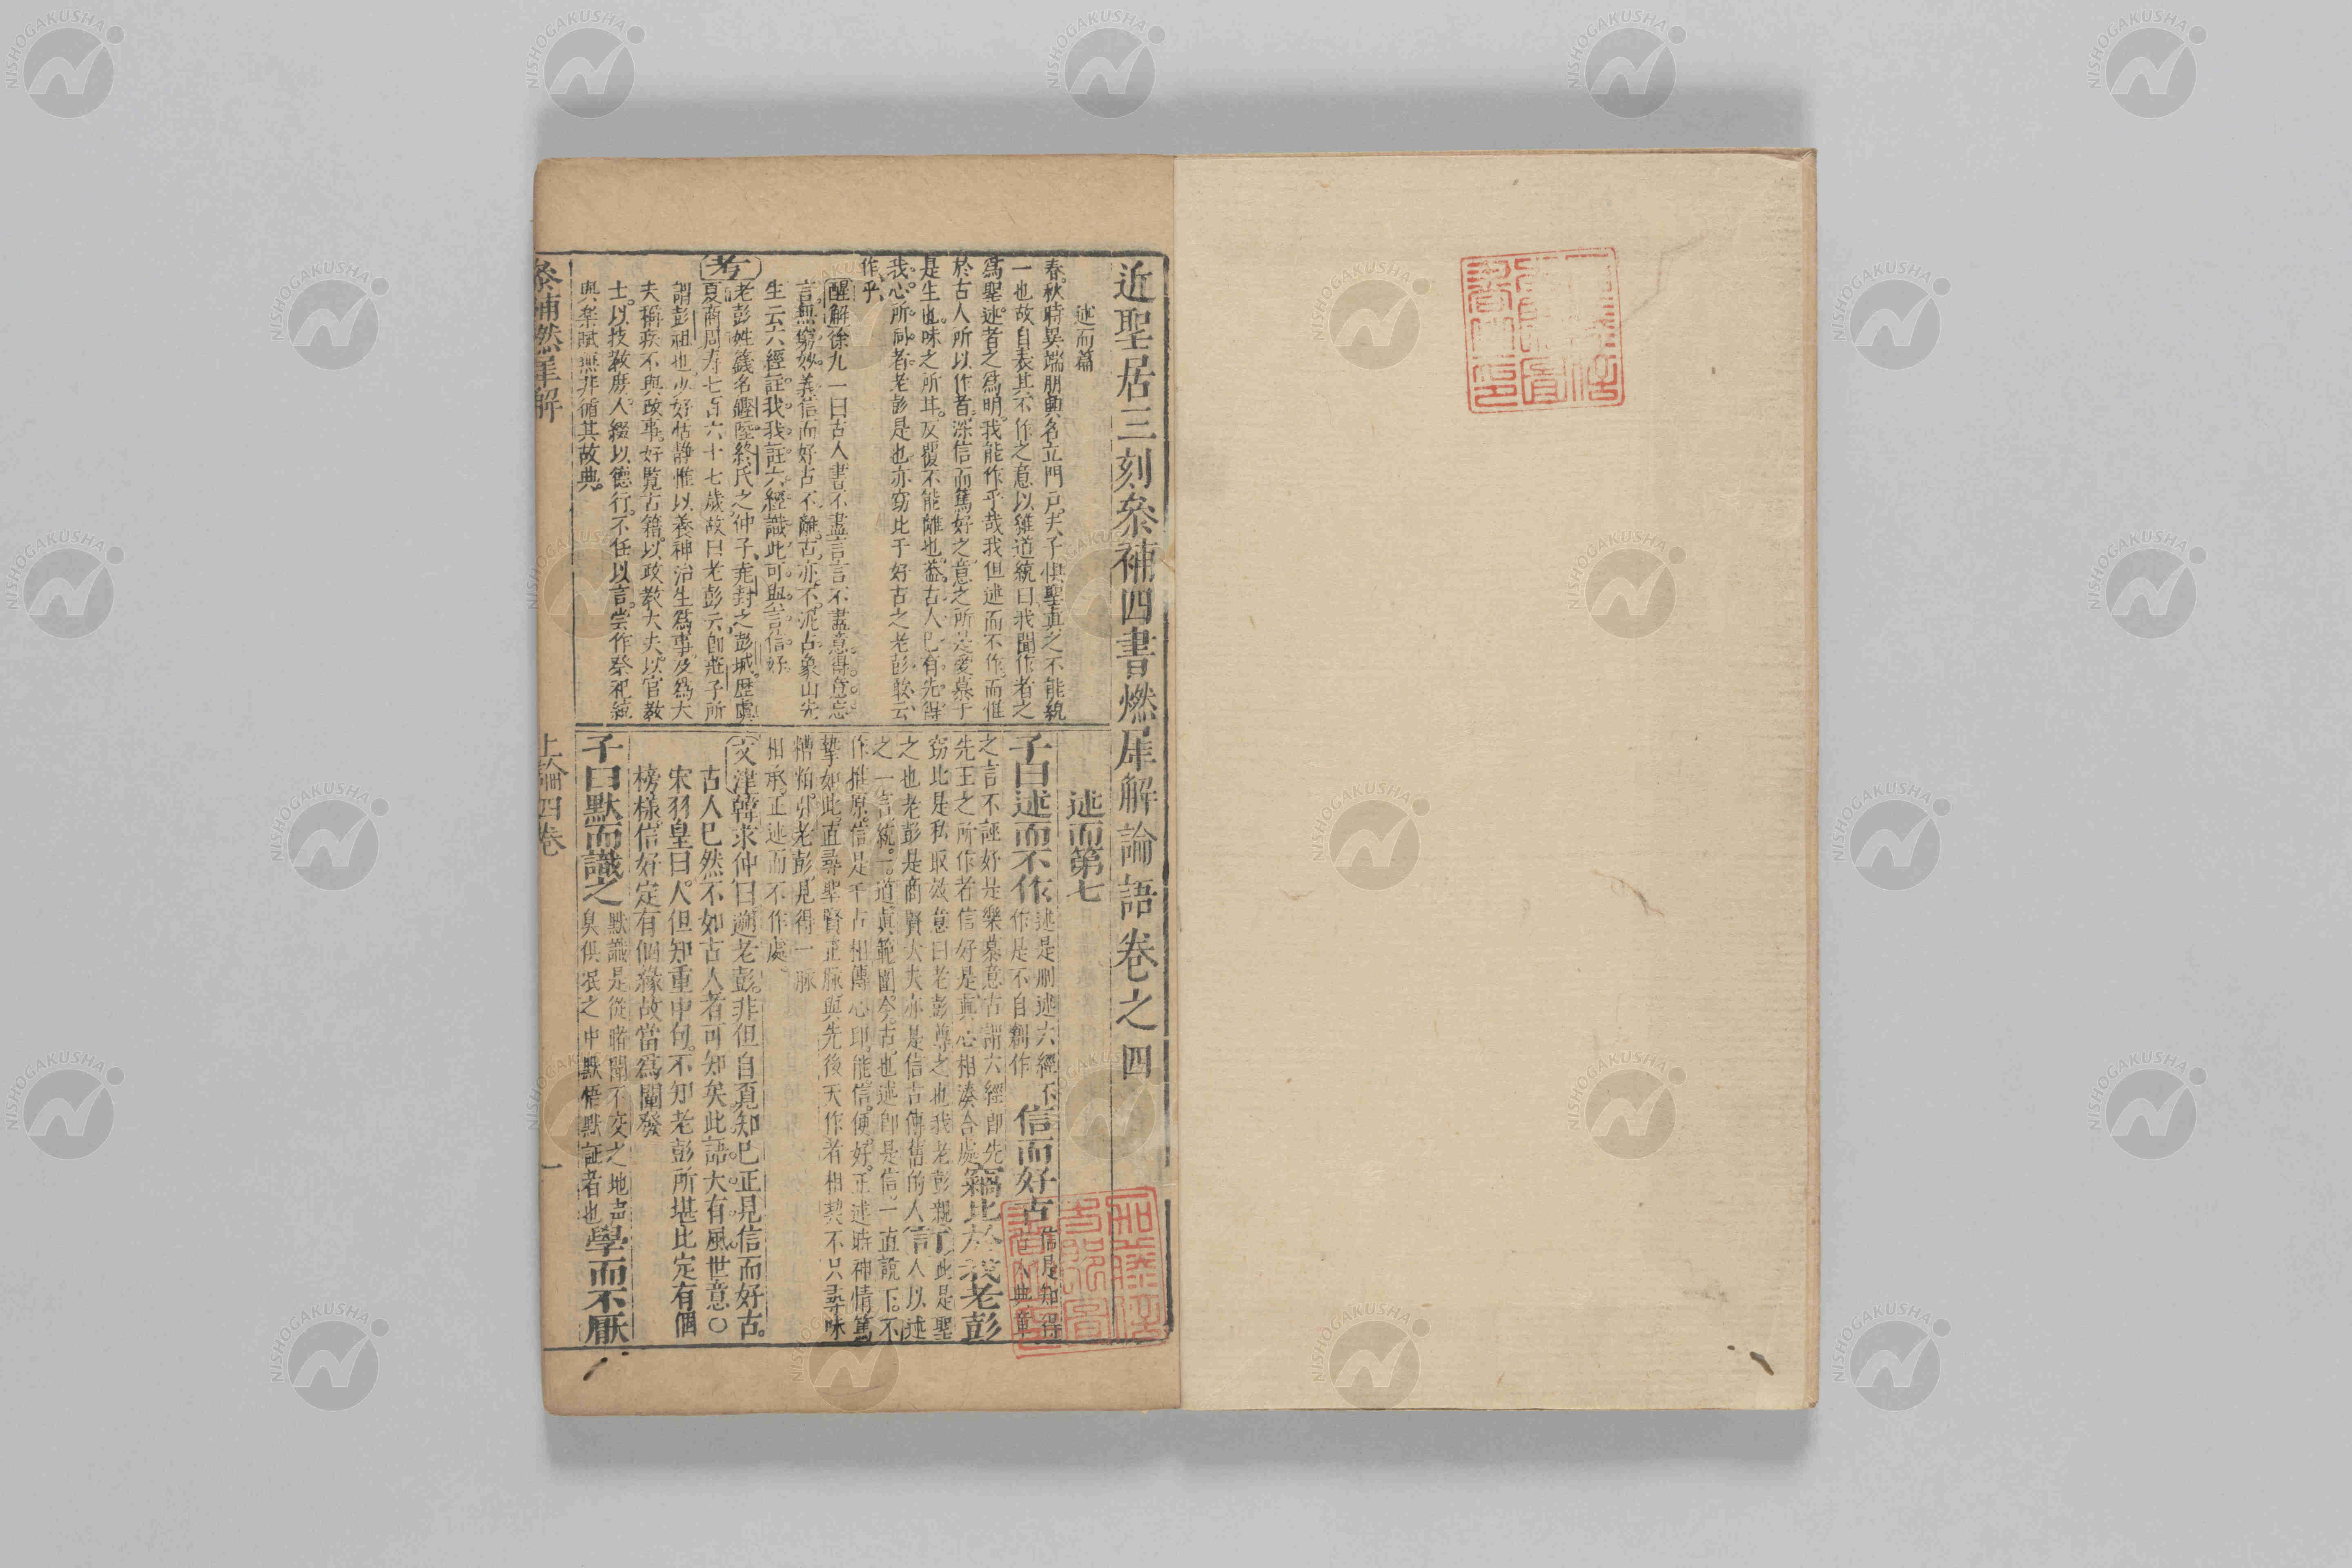 近聖居三刻叅補四書燃犀解論語卷之四
述而篇
春秋時異端朋興名立門戸夫子惧聖眞之不能統
一也故自表其不作之意以維道統曰我聞作者之
爲聖述者之爲明我能作乎哉我但述而不作而惟
於古人所以作者深信而篤好之意之所是愛慕于
是生也味之所耳反覆不能離也葢古人已有先得
我心所同者老彭是也亦窃比于好古之老彭敢云
作乎
醒解徐九一曰古人書不盡言言不盡意得意忘
言無窮妙義信而好古不離古亦不泥古象山先
生云六經註我我註六經識此可與言信好
考
老彭姓籛名鏗陸終氏之仲子堯封之彭城歷虞
夏商周寿七百六十七歲故曰老彭云卽莊子所
謂彭祖也少好恬静惟以養神治生爲事及爲大
夫稱疾不與政事好覧古籍以政教大夫以官教
士以技敎庶人綴以德行不任以言尝作祭祀統
與楽賦無非循其故典
述而第七
子曰述而不作 述是刪述六經不
作是不自創作 信而好古 信是知得
之言不誣好是樂慕意古謂六經即先
先王之所作者信好是眞心相湊合處 竊比於我老彭
窃比是私取效意曰老彭尊之也我老彭親 此是聖
之也老彭是商賢大夫亦是信古傳舊的人 人以述
之一言統一道眞範圍今古也述卽是信一直說下不
作推原信是千古相傳心印能信便好正述時神情篤
摯如此直尋聖賢正脉與先後天作者相契不只尋味
糟粕引老彭見得一脉
相承正述而不作處
文津韓求仲曰遡老彭非但自覔知已正見信而好古
古人已然不如古人者可知矣此語大有風世意〇
宋羽皇曰人但知重申句不知老彭所堪比定有個
榜樣信好定有個緣故當爲闡發
子曰默而識之 默識是從睹聞不交之地
臭俱泯之中默悟默証者也 學而不厭
叅補燃犀解
上論四卷
一